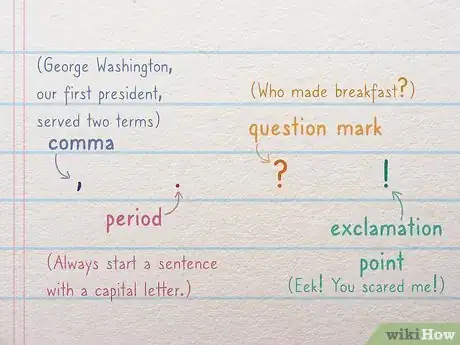 (George Washington,
our first president,
served two terms)
comma
,
.
period
(Always start a sentence
with a capital letter.)
(Who made breakfast?)
question mark
?
!
exclamation
point
(Eek! You scared me!)
wikiHow